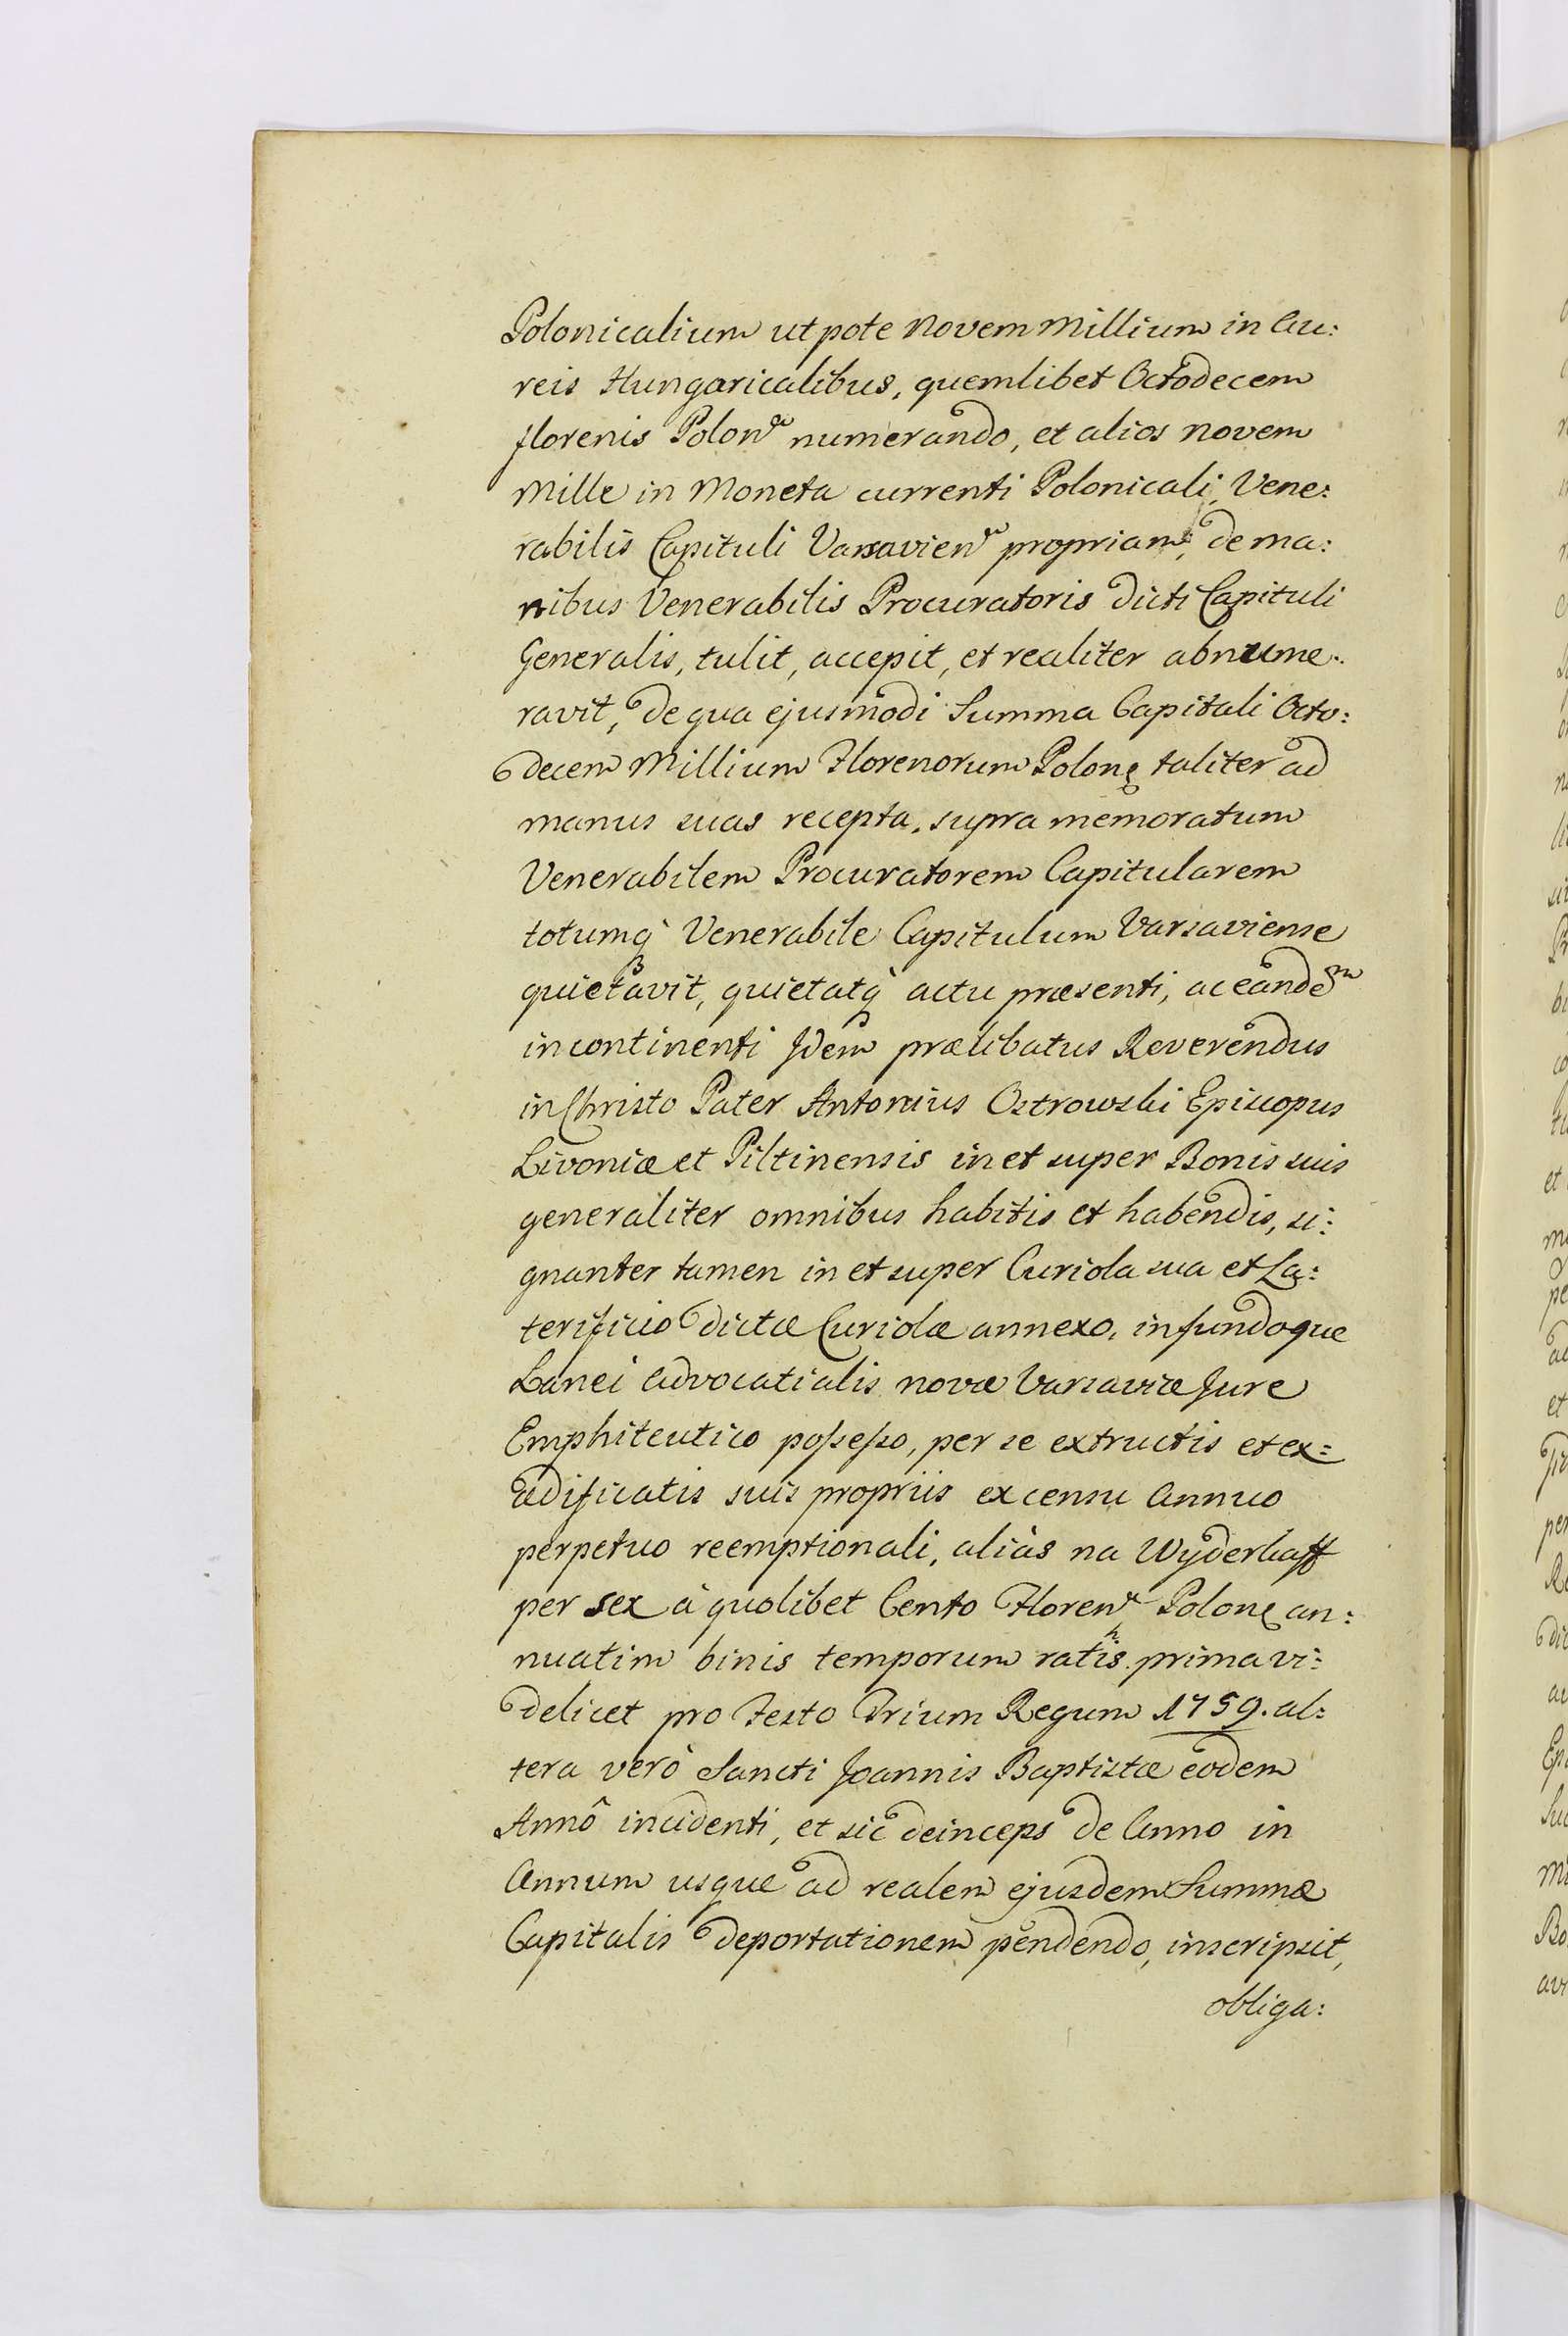 Polonicalium utpote Novem Millium in Au:
reis Hungaricalibus, quemlibet Octodecem
florenis Polon. numerando, et alios novem
Mille in Moneta currenti Polonicali, Vene:
rabilis Capituli Varsavien. propriam, de ma:
nibus Venerabilis Procuratoris dicti Capituli
Generalis, tulit, accepit, et realiter abnume:
ravit, de qua ejusmodi Summa Capitali Octo:
decem Millium Florenorum Polon. taliter ad
manus suas recepta, supra memoratum
Venerabilem Procuratorem Capitularem
totumq̀ Venerabile Capitulum Varsaviense
quietavit, quietatq̀ actu præsenti, ac eandem
in continenti Idem prælibatus Reverendus
in Christo Pater Antonius Ostrowski Episcopus
Livoniæ et Piltinensis in et super Bonis suis
generaliter omnibus habitis et habendis, si:
gnanter tamen in et super Curiola sua et La:
terificio dictæ Curiolæ annexo, in fundoque
Lanei Advocatialis novæ Varsaviæ Jure
Emphiteutico possesso, per se extructis et ex=
ædificatis suis propriis ex censu Annuo
perpetuo reemptionali, aliàs na Wyderkaff
per sex à quolibet Cento Floren. Polon. an:
nuatim binis temporum ratis prima vi:
delicet pro Festo Trium Regum 1759. al:
tera verò Sancti Joannis Baptistæ eodem
Annô incidenti, et sic deinceps de Anno in
Annum usque ad realem ejusdem Summæ
Capitalis deportationem pendendo, inscripsit,
obliga: